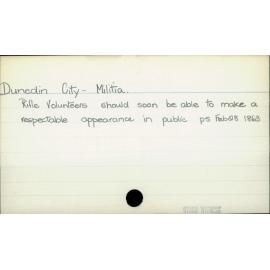 Dunedin City - Militia.
Rifle Volunteers should soon be able to make a
respectable appearance in public p5 Feb 28 1863